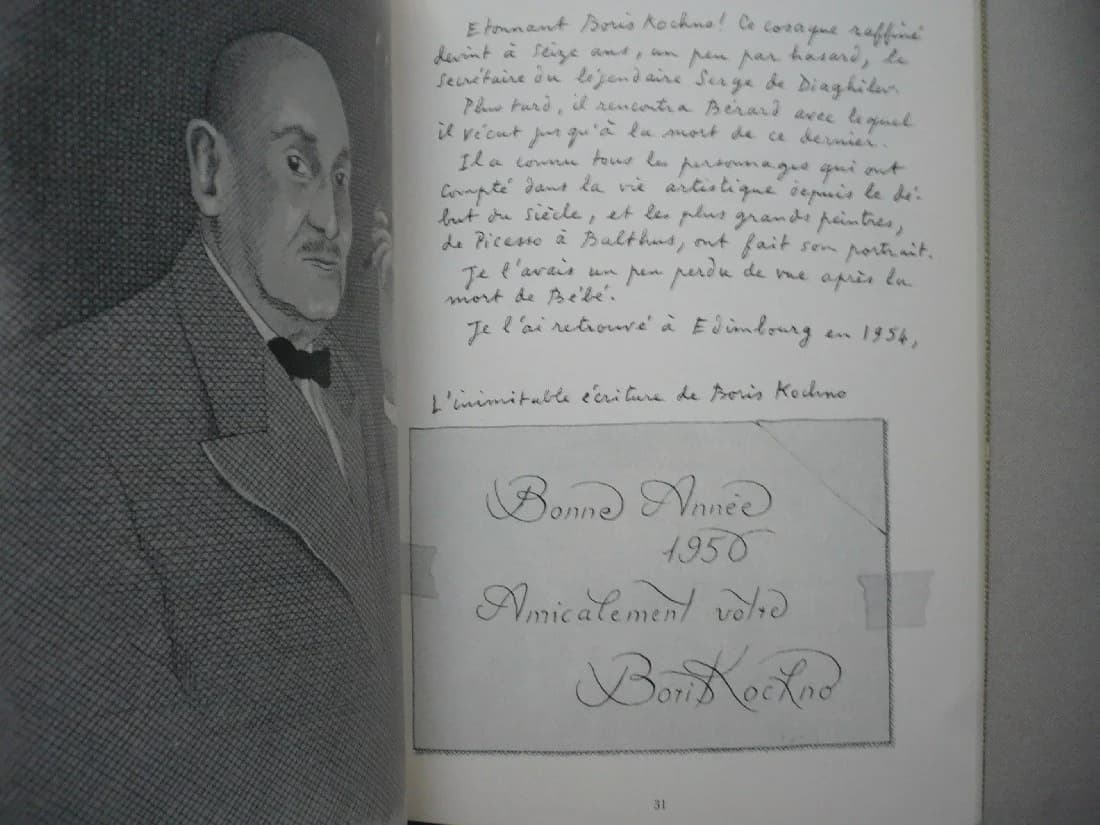 Etonnant Boris Kochno! Ce cosaque raffiné
devint à seize ans, un peu par hasard, le
secrétaire du légendaire Serge de Diaghilev.
Plus tard, il rencontra Bérard avec lequel
il vécut jusqu'à la mort de ce dernier.
Il a connu tous les personnages qui ont
compté dans la vie artistique depuis le dé-
but du siècle, et les plus grands peintres,
de Picasso à Balthus, ont fait son portrait.
Je l'avais un peu perdu de vue après la
mort de Bébé.
Je l'ai retrouvé à Edimbourg en 1954,
L'inimitable écriture de Boris Kochno
Bonne Année
1950
Amicalement votre
Boris Kochno
31